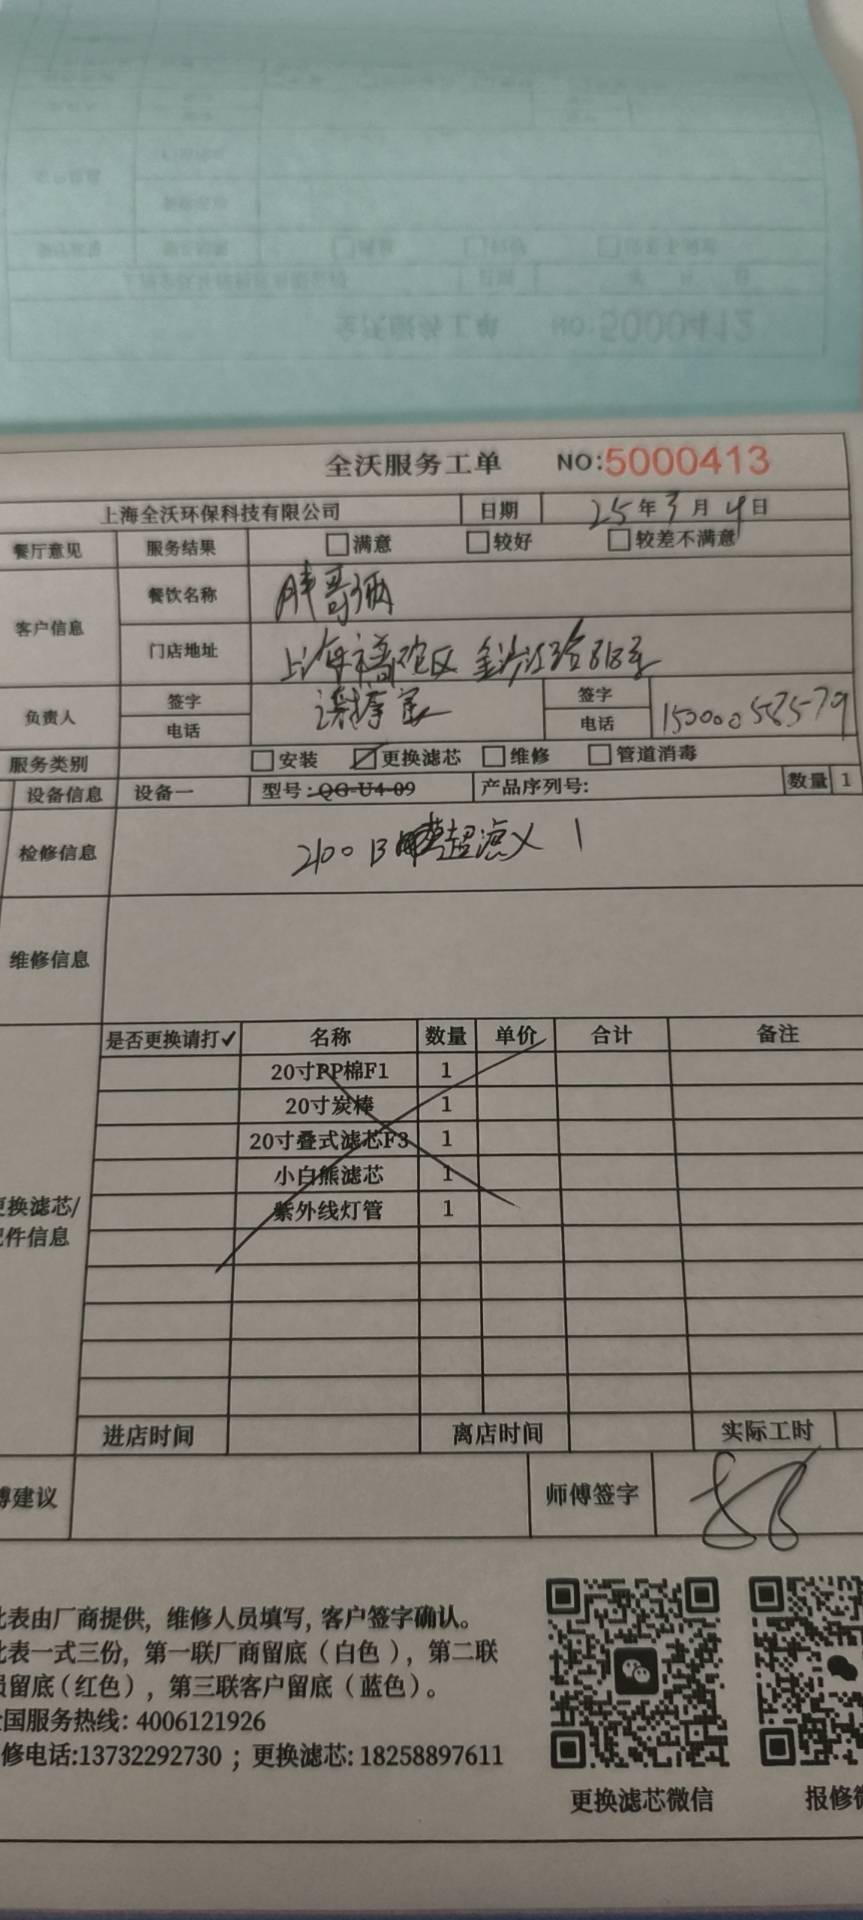 全沃服务工单 NO:5000412
全沃服务工单 NO:5000413
上海全沃环保科技有限公司 日期 25年3月4日
餐厅意见 服务结果 □满意 □较好 □较差不满意
客户信息 餐饮名称 胖哥俩
门店地址 上海市普陀区金沙江路818号
负责人 签字 签字
电话 电话
服务类别 □安装 ☑更换滤芯 □维修 □管道消毒
设备信息 设备一 型号:QG-U4-09 产品序列号: 数量 1
检修信息 2100B 超滤 1
维修信息
是否更换请打✓ 名称 数量 单价 合计 备注
20寸PP棉F1 1
20寸炭棒 1
20寸叠式滤芯F3 1
小白熊滤芯 1
紫外线灯管 1
更换滤芯/
配件信息
进店时间 离店时间 实际工时
傅建议 师傅签字
此表由厂商提供，维修人员填写，客户签字确认。
此表一式三份，第一联厂商留底（白色），第二联
员留底（红色），第三联客户留底（蓝色）。
全国服务热线: 4006121926
修电话:13732292730 ；更换滤芯: 18258897611
更换滤芯微信 报修微